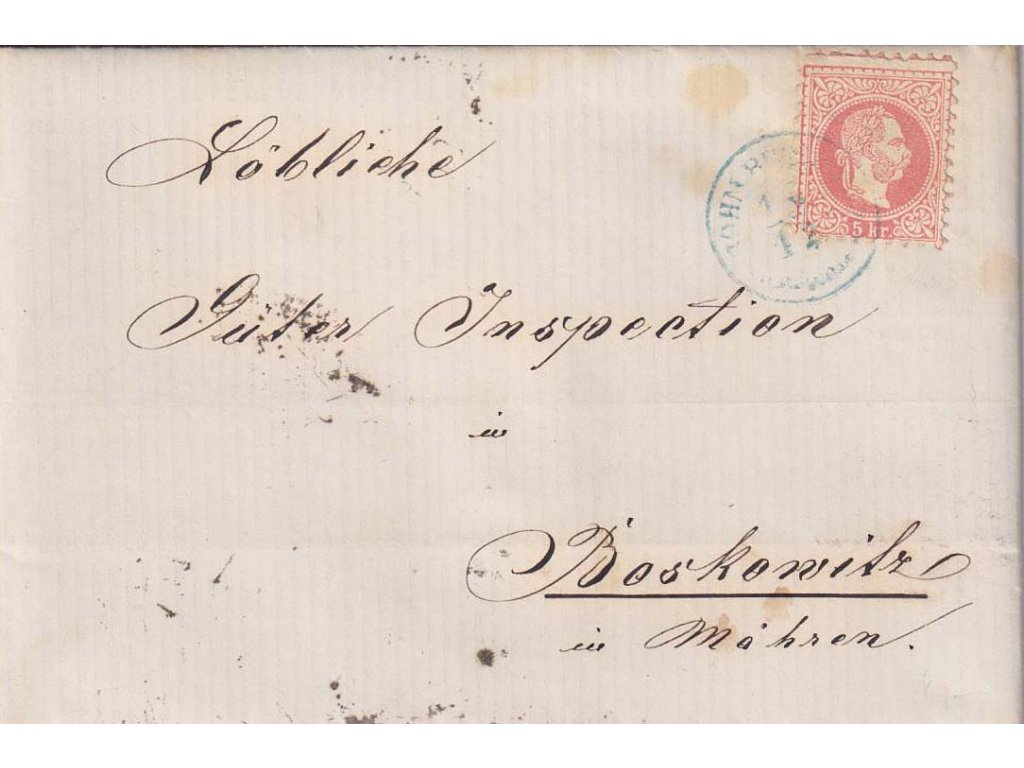 Löbliche
5 kr.
Güter Inspection
in
Boskowitz
in Mähren.